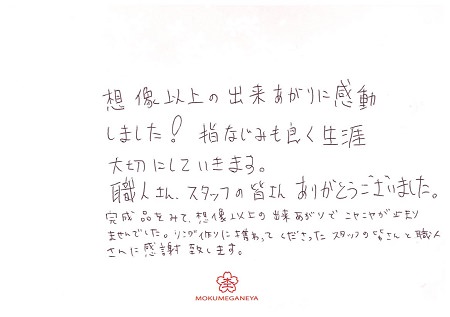 想像以上の出来あがりに感動
しました！ 指なじみも良く生涯
大切にしていきます。
職人さん、スタッフの皆さん ありがとうございました。
完成品をみて、想像以上の出来あがりで ニヤニヤが止まり
ませんでした。リング作りに携わって くださった スタッフの皆さんと職人
さんに感謝致します。
MOKUMEGANEYA